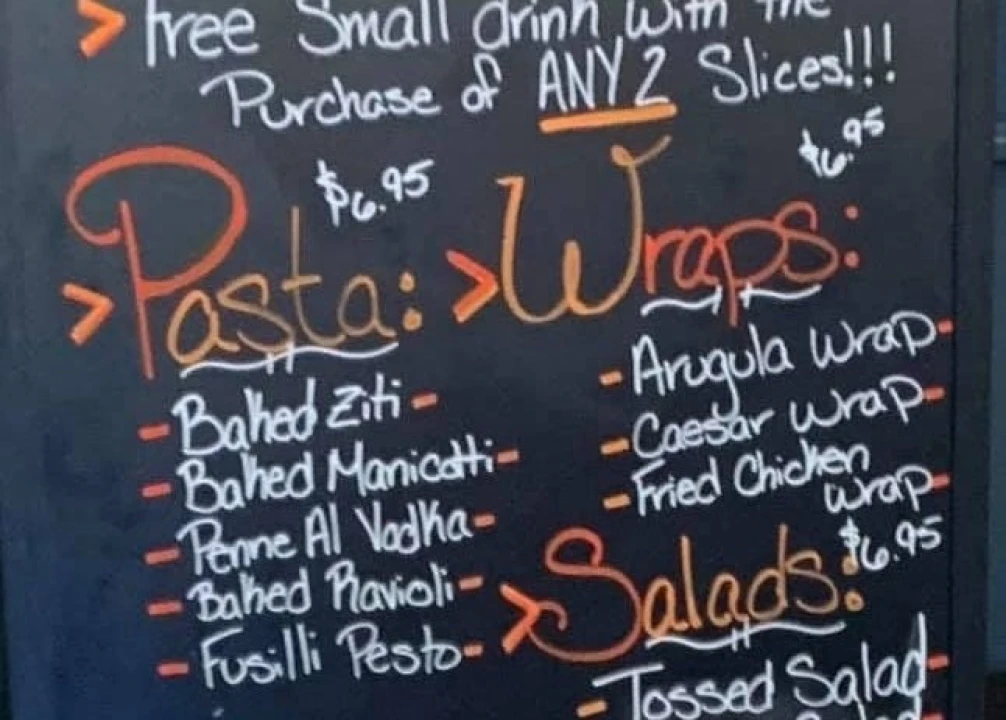 > Free Small drink with the
Purchase of ANY 2 Slices!!!
$6.95
> Pasta:
- Baked Ziti -
- Baked Manicotti -
- Penne Al Vodka -
- Baked Ravioli -
- Fusilli Pesto -
$6.95
> Wraps:
- Arugula Wrap -
- Caesar Wrap -
- Fried Chicken
Wrap -
$6.95
> Salads:
- Tossed Salad -